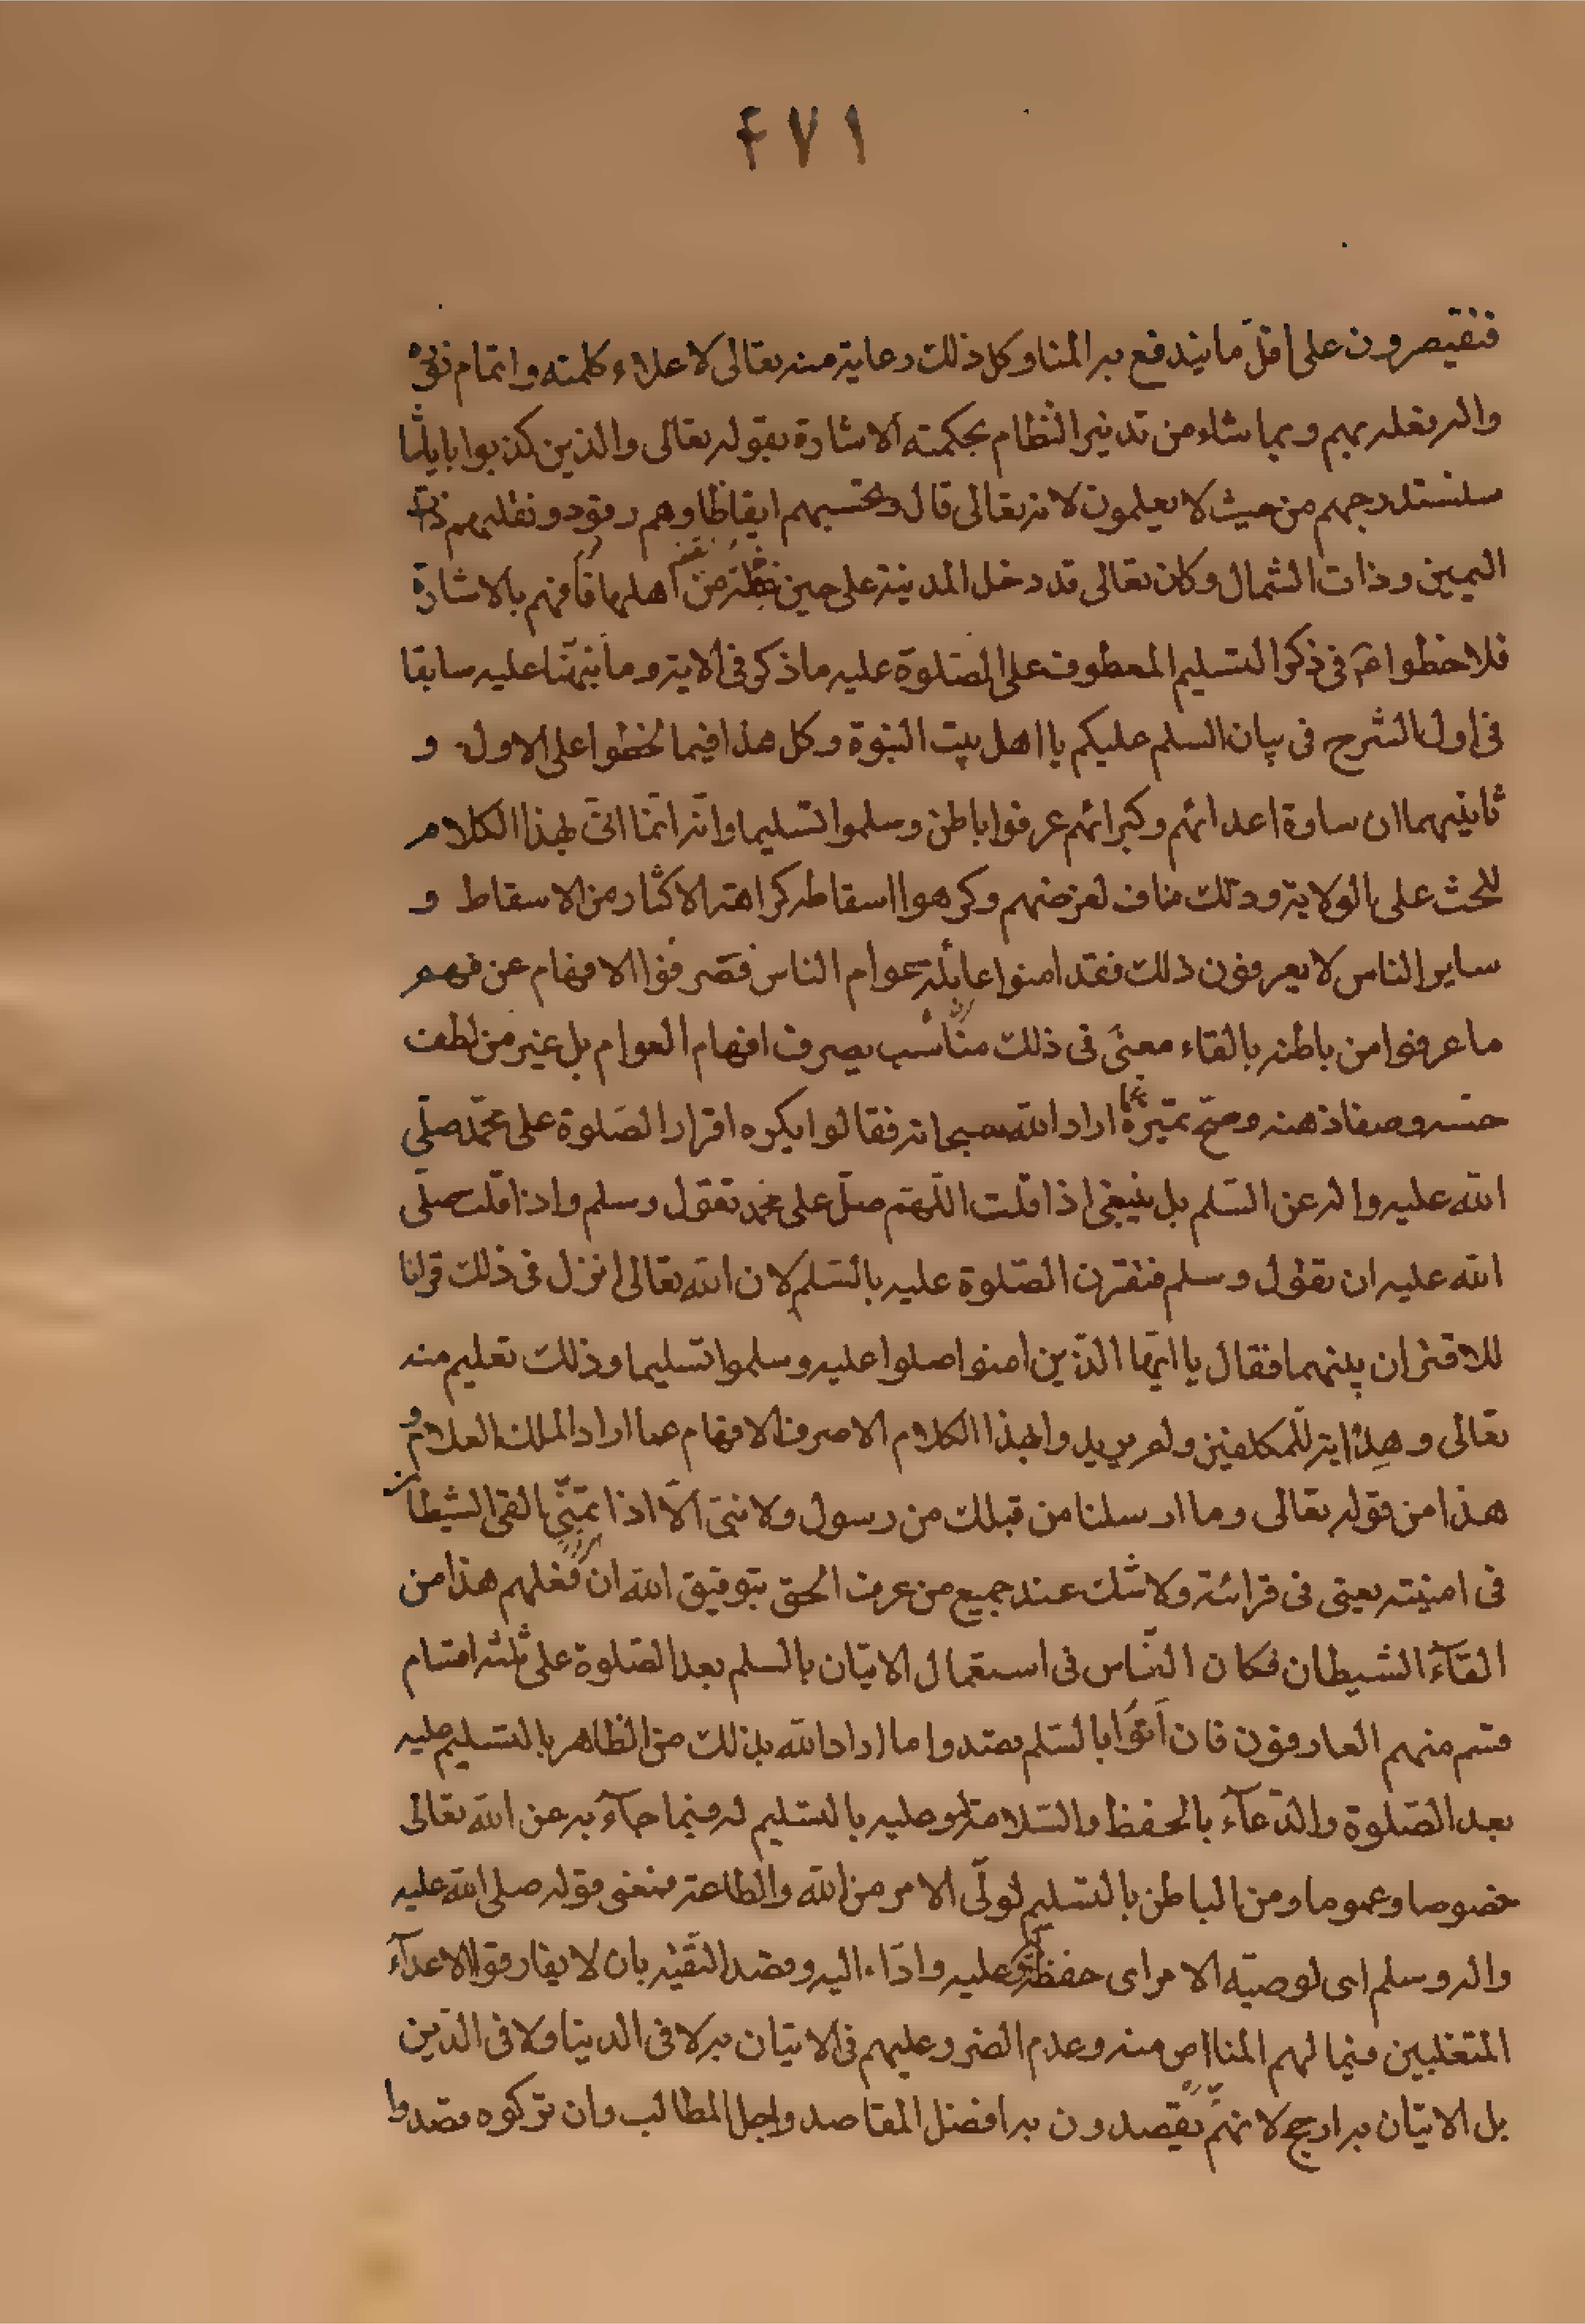 ۴۷۱
فيقتصرون على اقلّ ما يندفع به المنا وكل ذلك رعاية منه تعالى لاعلاء كلمته واتمام نوره
والد بفعله بهم وبما شاء من تدبير النظام بحكمته الاشارة بقوله تعالى والذين كذبوا باياتنا
سنستدرجهم من حيث لا يعلمون لانه تعالى قال وتحسبهم ايقاظا وهم رقود ونقلبهم ذات
اليمين وذات الشمال وكان تعالى قد دخل المدينة على حين غفلة من اهلها فافهم بالاشارة
فلاحظوا في ذكر التسليم المعطوف على الصّلوة عليه ما ذكر في الاية وما نبهنا عليه سابقا
في اول الشرح في بيان السلم عليكم يا اهل بيت النبوة وكل هذا فيما لحظوا على الاول و
ثانيهما ان سادة اعدائهم وكبرائهم عرفوا باطن وسلموا تسليما وانّه انّما اتى بهذا الكلام
للحث على الولاية وذلك مناف لغرضهم وكرهوا اسقاطه كراهة الاكثار من الاسقاط و
ساير الناس لا يعرفون ذلك فقد امنوا عائلة عوام الناس فصرفوا الافهام عن فهم
ما عرفوا من باطنه بالقاء معنىً في ذلك مناسب يصرف افهام العوام بل غير من لطف
حسه وصفا ذهنه وصحّ تميّزه عما اراد الله سبحانه فقالوا يكره افراد الصّلوة على محمّد صلّى
الله عليه واله عن السّلم بل ينبغي اذا قلت اللّهمّ صلّ على محمد تقول وسلم واذا قلت صلّى
الله عليه ان تقول وسلم فتقرن الصّلوة عليه بالسّلم لان الله تعالى انزل في ذلك قرانا
للاقتران بينهما فقال يا ايّها الذين امنوا صلوا عليه وسلموا تسليما وذلك تعليم منه
تعالى وهداية للمكلفين ولم يريدوا بهذا الكلام الا صرف الافهام عما اراد الملك العلام و
هذا من قوله تعالى وما ارسلنا من قبلك من رسول ولا نبيّ الّا اذا تمنّى القى الشيطان
في امنيته يعني في قرائته ولا شك عند جميع من عرف الحق بتوفيق الله ان فعلهم هذا من
القآء الشيطان فكان النّاس في استعمال الاتيان بالسلم بعد الصّلوة على ثلثة اقسام
قسم منهم العارفون فان اَتَوا بالسّلم قصدوا ما اراد الله بذلك من الظاهر بالتسليم عليه
بعد الصّلوة والدّعآء بالحفظ والسّلامة له وعليه بالتسليم له فيما جآء به عن الله تعالى
خصوصا وعموما ومن الباطن بالتسليم لوليّ الامر من الله والطاعة فمعنى قوله صلى الله عليه
واله وسلم اي لوصيّه الامر اي حفظه عليه وادّاه اليه وقصد التقيّة بان لا يفارقوا الاعدآء
المتغلبين فيما لهم المناص منه وعدم الضرر عليهم في الاتيان به لا في الدنيا ولا في الدّين
بل الاتيان به ارجح لانهم يقصدون به افضل المقاصد واجل المطالب وان تركوه قصدوا